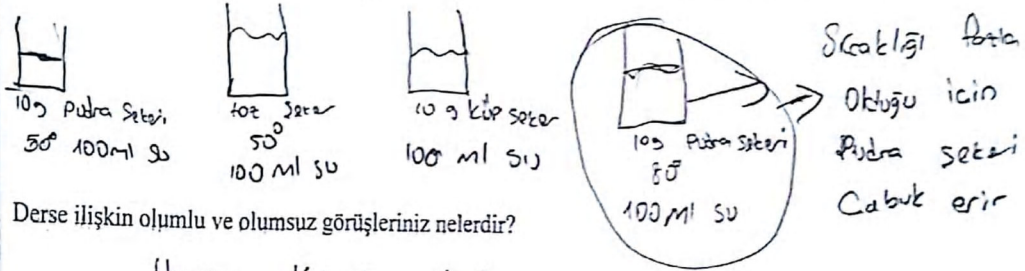 10g Pudra Şekeri
50° 100ml Su
toz Şeker
50°
100 ml su
10 g küp şeker
100 ml su
10g Pudra Şekeri
80°
100 ml su
Sıcaklığı fazla
Olduğu için
Pudra şekeri
Cabuk erir
Derse ilişkin olumlu ve olumsuz görüşleriniz nelerdir?